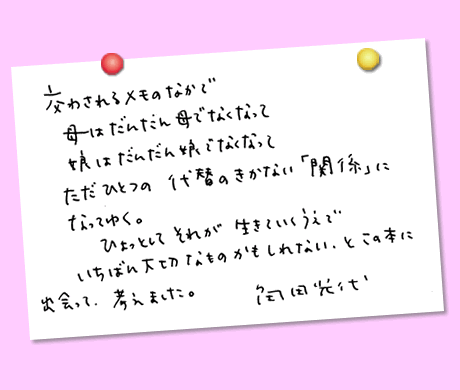 交わされるメモのなかで
母はだんだん母でなくなって
娘はだんだん娘でなくなって
ただひとつの 代替のきかない「関係」に
なってゆく。
ひょっとしてそれが 生きていくうえで
いちばん大切なものかもしれない、と この本に
出会って、考えました。 角田光代